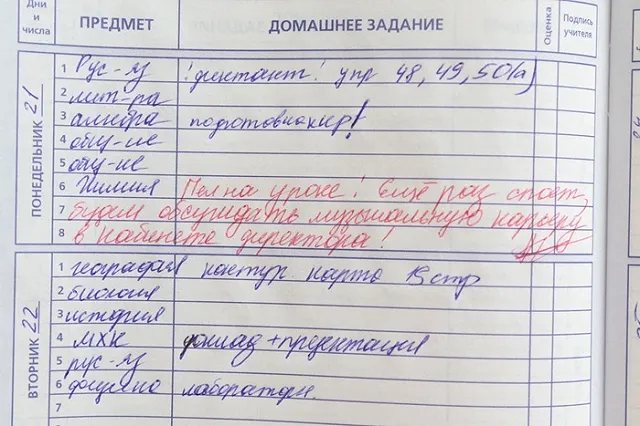 Дни и числа ПРЕДМЕТ ДОМАШНЕЕ ЗАДАНИЕ Оценка Подпись учителя
ПОНЕДЕЛЬНИК 21
1 Рус-яз !диктант! упр 48, 49, 50(а)
2 лит-ра
3 алгебра подготов к кр!
4 общ-ие
5 общ-ие
6 Химия Пел на уроке! Ещё раз споёт,
7 будем обсуждать музыкальную карьеру
8 в кабинете директора!
ВТОРНИК 22
1 география контур карта 13 стр
2 биология
3 история
4 МХК доклад+презентация
5 рус-яз
6 физика лабораторн.
7